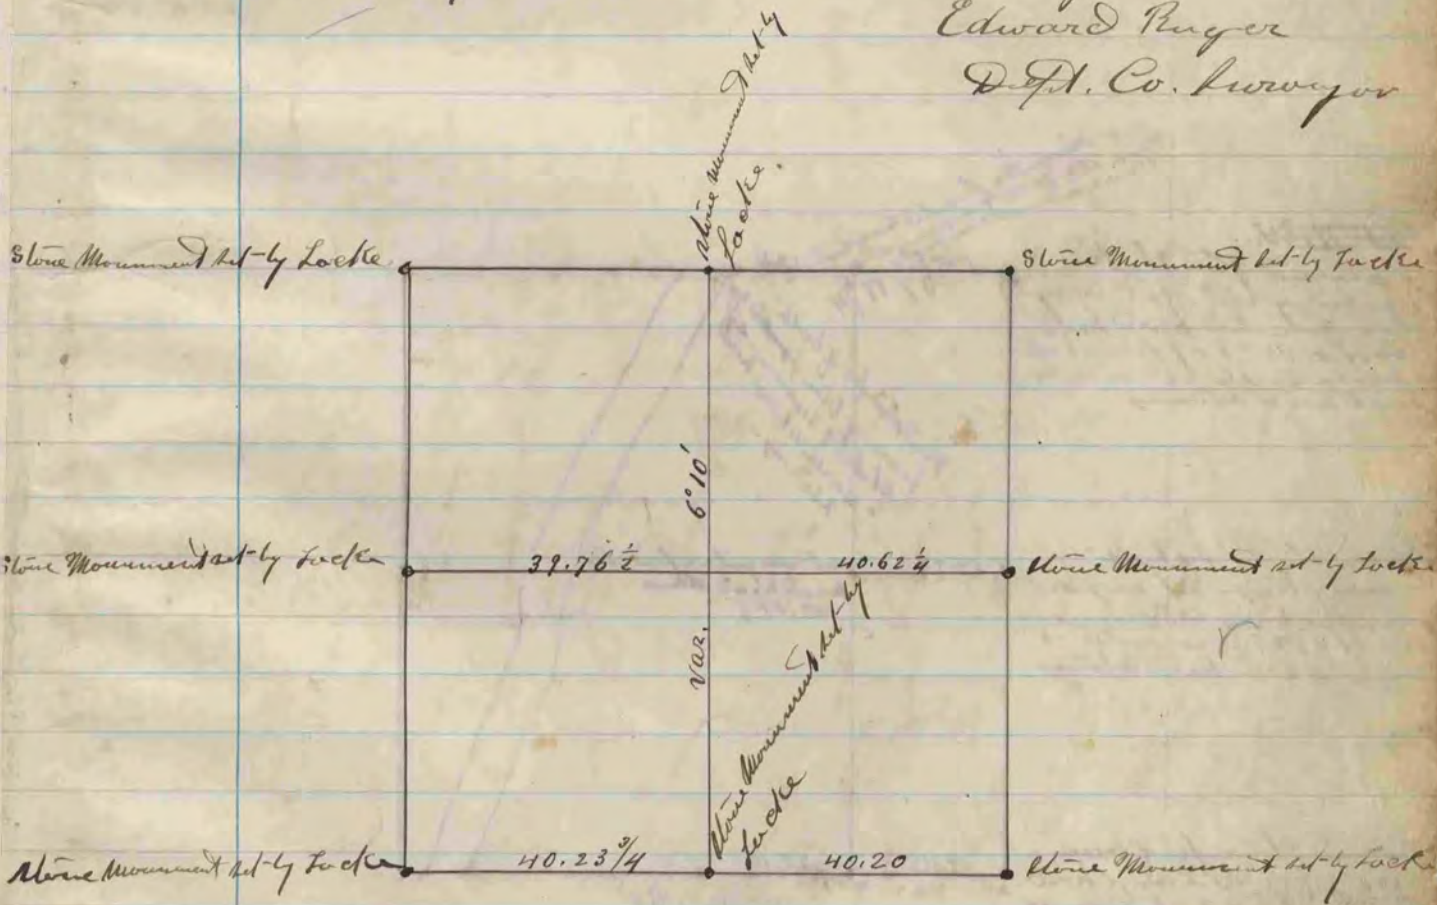 Edward Ruger
Dept. Co. Surveyor
Stone Monument set by
Locke.
Stone Monument set by Locke
Stone Monument set by Locke
6° 10'
Stone Monument set by Locke
39.76 1/2
40.62 1/4
Stone Monument set by Locke
Var.
Stone Monument set by
Locke
Stone Monument set by Locke
40.23 3/4
40.20
Stone Monument set by Locke